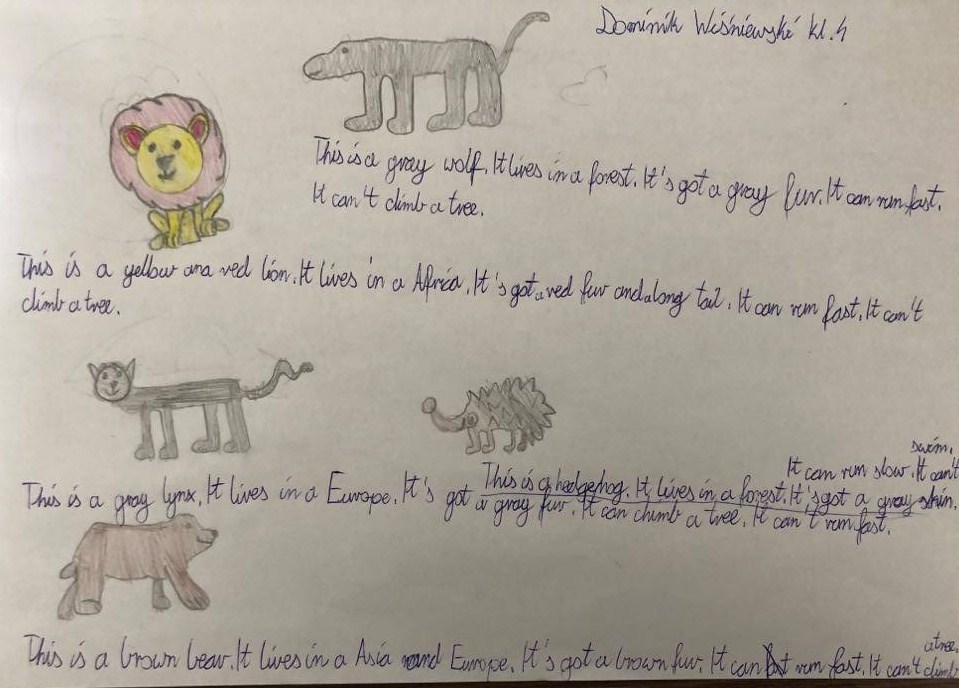 Dominik Wiśniewski kl.4
This is a gray wolf. It lives in a forest. It's got a gray fur. It can run fast.
It can't climb a tree.
This is a yellow ana red lion. It lives in a Africa. It's got a red fur and a long tail. It can run fast. It can't
climb a tree.
This is a gray lynx. It lives in a Europe. It's got
a gray fur. It can chimb a tree. It can't run fast.
This is a hedgehog. It lives in a forest. It's got a gray skin.
It can run slow. It can't
swim.
This is a brown bear. It lives in a Asia and Europe. It's got a brown fur. It can run fast. It can't climb
a tree.